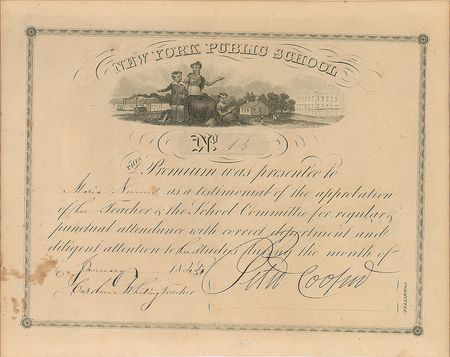 NEW YORK PUBLIC SCHOOL
No. 13
THIS Premium was presented to
Maria as a testimonial of the approbation
of her Teacher & the School Committee for regular &
punctual attendance with correct deportment and
diligent attention to her studies during the month of
January 1844
Peter Cooper
Caroline Whiting teacher
COMMITTEE